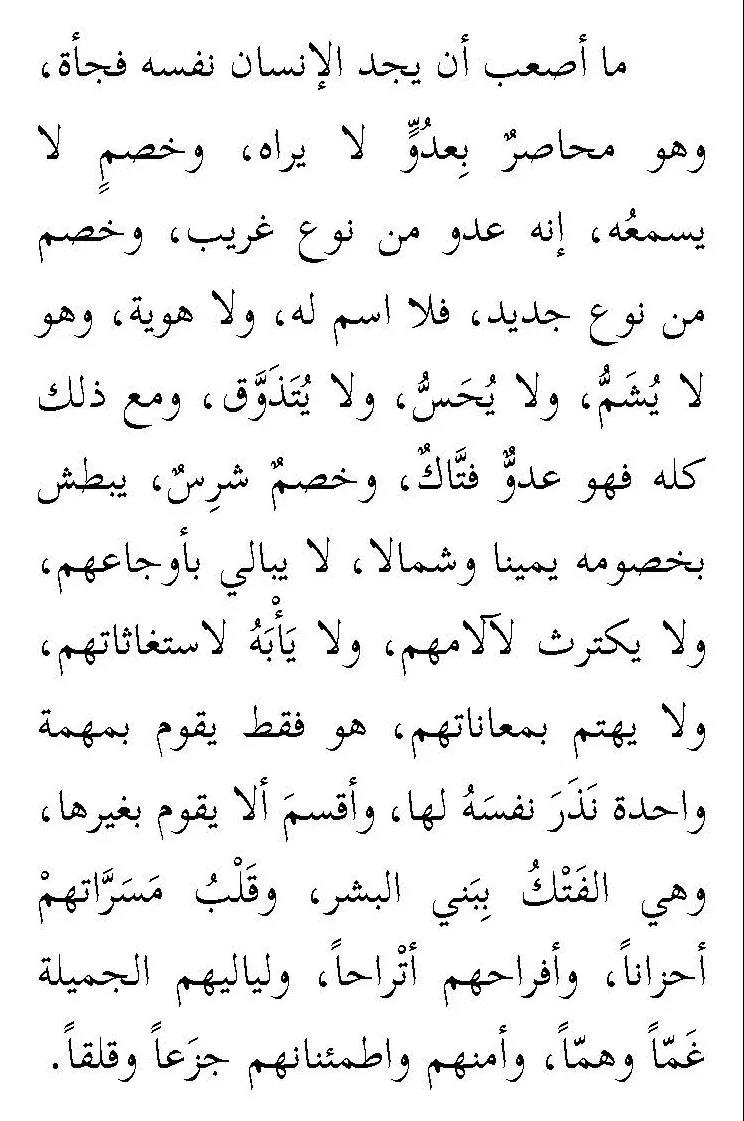 ما أصعب أن يجد الإنسان نفسه فجأة،
وهو محاصرٌ بِعدُوٍّ لا يراه، وخصمٍ لا
يسمعُه، إنه عدو من نوع غريب، وخصم
من نوع جديد، فلا اسم له، ولا هوية، وهو
لا يُشَمُّ، ولا يُحَسُّ، ولا يُتَذَوَّق، ومع ذلك
كله فهو عدوٌّ فتَّاكٌ، وخصمٌ شرِسٌ، يبطش
بخصومه يمينا وشمالا، لا يبالي بأوجاعهم،
ولا يكترث لآلامهم، ولا يَأْبَهُ لاستغاثاتهم،
ولا يهتم بمعاناتهم، هو فقط يقوم بمهمة
واحدة نَذَرَ نفسَهُ لها، وأقسمَ ألا يقوم بغيرها،
وهي الفَتْكُ بِبَني البشر، وقَلْبُ مَسَرَّاتهمْ
أحزاناً، وأفراحهم أتْراحاً، ولياليهم الجميلة
غَمّاً وهمّاً، وأمنهم واطمئنانهم جزَعاً وقلقاً.